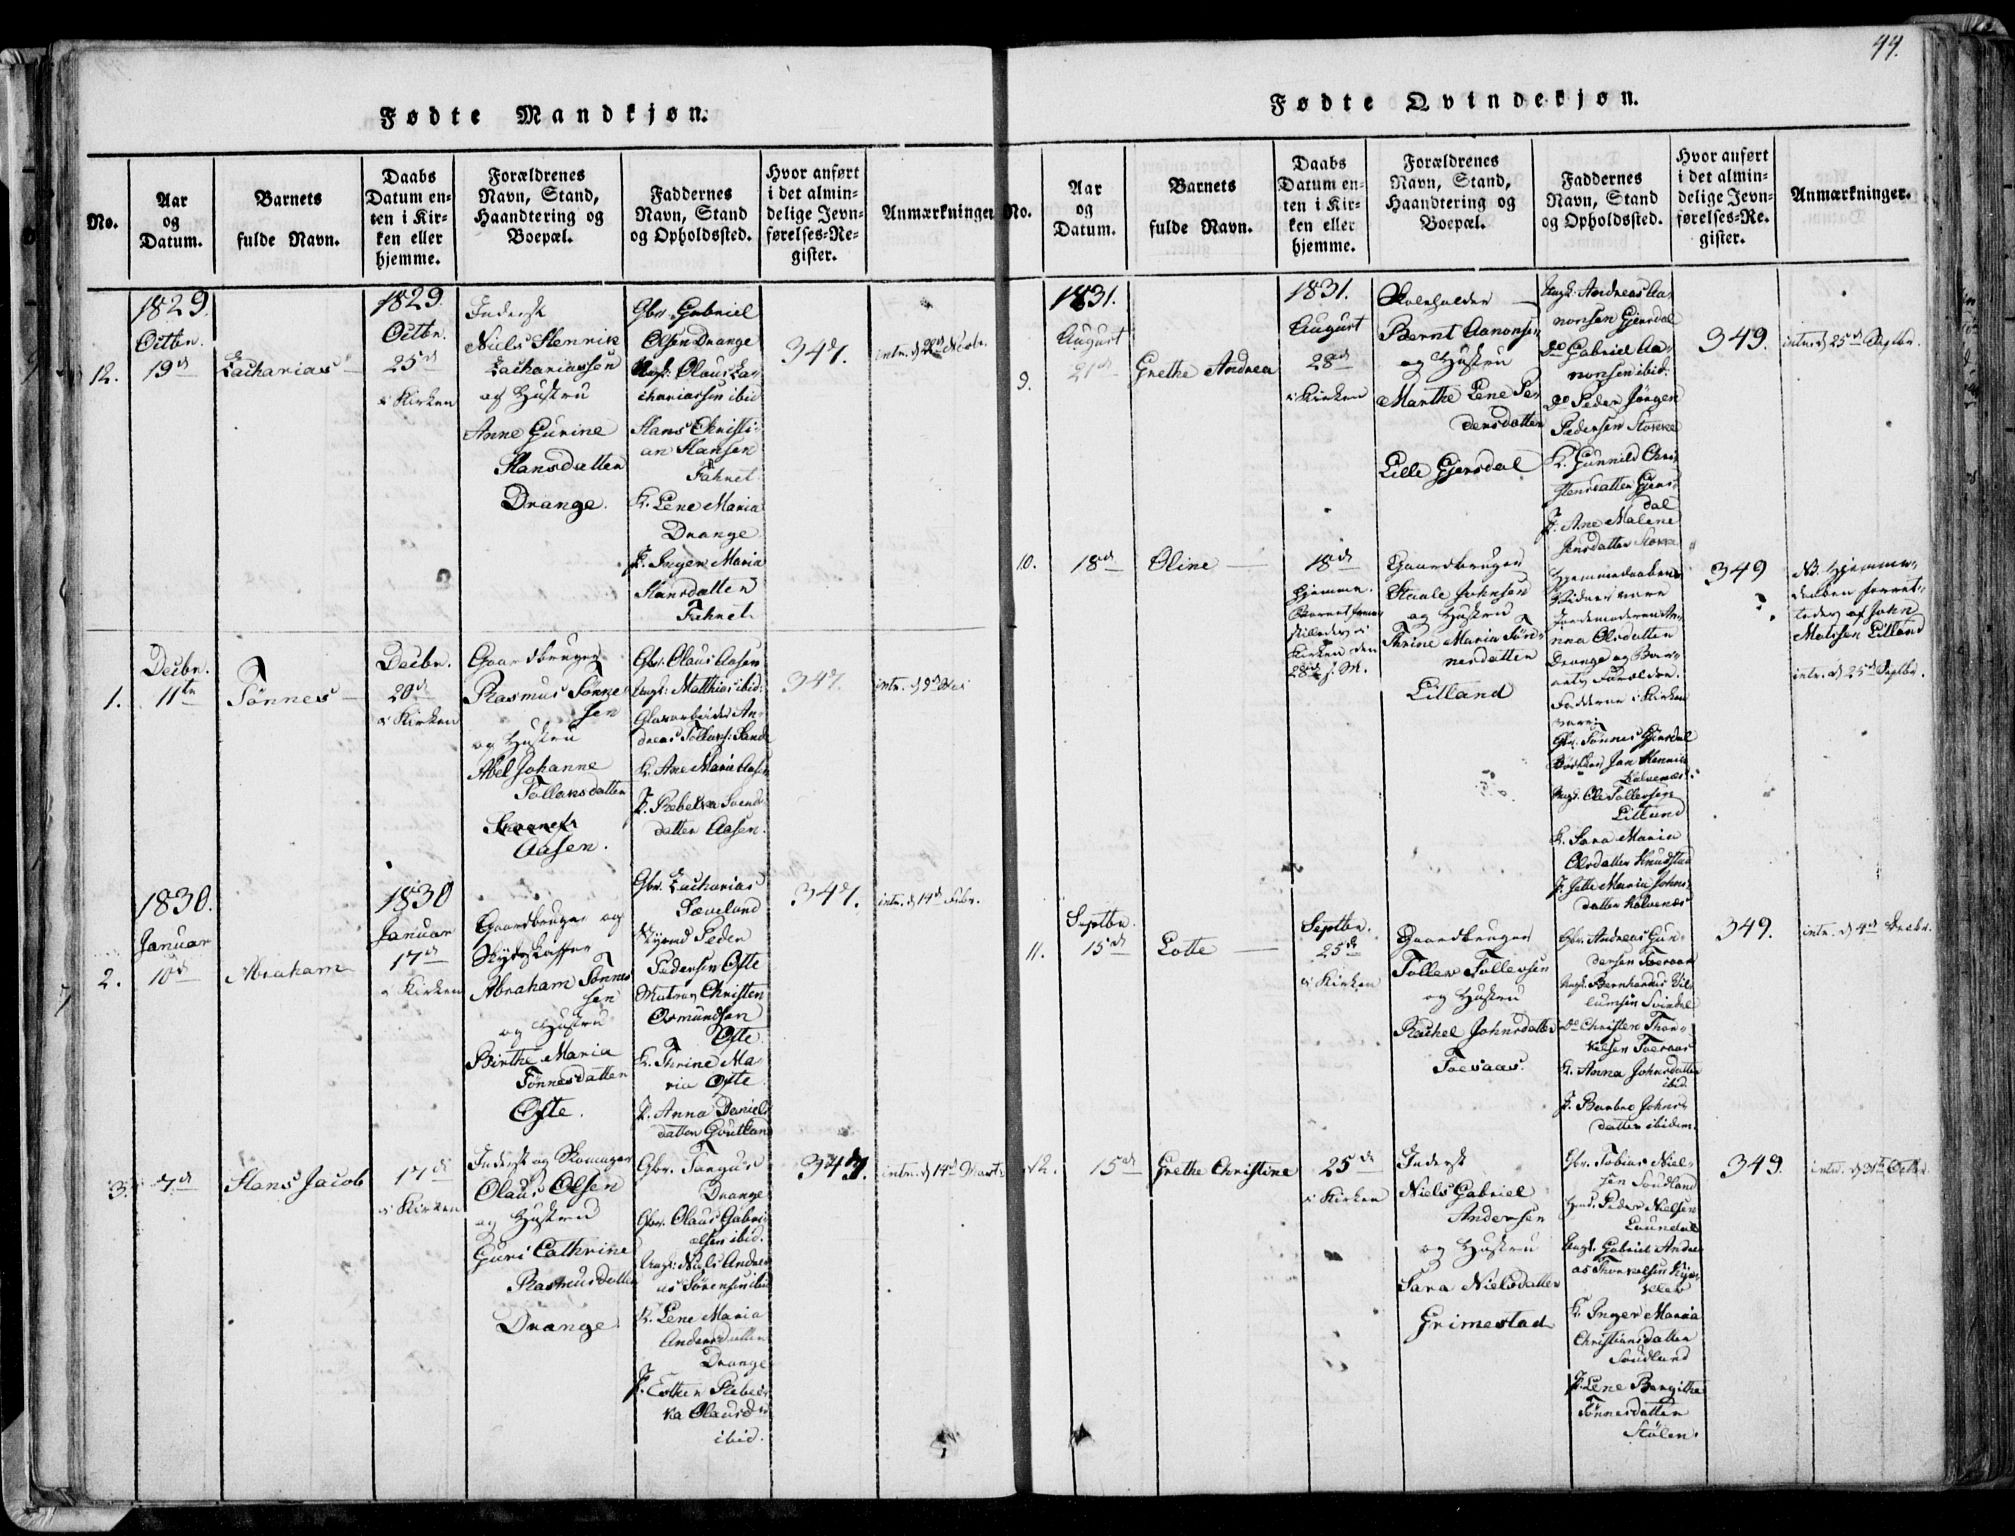 44.
Fødte Mandkjøn.
No.
Aar
og
Datum.
Barnets
fulde Navn.
Daabs
Datum en-
ten i Kir-
ken eller
hjemme.
Forældrenes
Navn, Stand,
Haandtering og
Boepæl.
Faddernes
Navn, Stand
og Opholdssted.
Hvor anført
i det almin-
delige Jevn-
førelses-Re-
gister.
Anmærkninger
12.
1829.
Octbr.
19de
Zacharias
1829.
Octbr.
25de
i Kirken
Inderst
Niels Henrik
Zachariassen
og Hustru
Anne Gurine
Hansdatter
Drange.
Gbr. Gabriel
Olsen Drange
Ungk. Olaus Za-
chariassen ibid
Hans Christi-
an Hansen
Fahret.
K. Lene Maria
Drange
P. Inger Maria
Hansdatter
Fahret.
347.
intr. d. 22de Novbr.
1.
Decbr.
11te
Tönnes
Decbr.
20de
i Kirken
Gaardbruger
Rasmus Tönne-
sen
og Hustru
Abel Johanne
Tollaksdatter
Aasen.
Gbr. Olaus Aasen
Ungk. Matthias ibid.
Glasarbeider An-
dreas Tollaks: Sande
K. Ane Maria Aasen
P. Rebekka Svends
datter Aasen.
347.
2.
1830.
Januar
10de
Abraham
1830
Januar
17de
i Kirken
Gaardbruger og
Skydsskaffer
Abraham Tönnes
sen
og Hustru
Birthe Maria
Tönnesdatter
Ofte.
Gbr. Zacharias
Sæveland
Peder
Pedersen Ofte
Matros Christen
Osmundsen
Ofte
K. Thrine Ma-
ria Ofte
P. Anna Daniels
datter
347.
intr. d. 14de Febr.
3.
7de
Hans Jacob
17de
i Kirken
Inderst og Skomager
Olaus Olsen
og Hustru
Guri Cathrine
Rasmusdatter
Drange.
Gbr. Targus
Drange
Gbr. Olaus Gabri-
elsen ibid.
Ungk: Niels Andre-
as Sörensen ibid
K. Lene Maria
Andersdatter
Drange
P. Esther Rebec-
ka Olausdr
ibid.
347.
intr. d. 14de Marts
Fødte Qvindekjøn.
No.
Aar
og
Datum.
Barnets
fulde Navn.
Daabs
Datum en-
ten i Kir-
ken eller
hjemme.
Forældrenes
Navn, Stand,
Haandtering og
Boepæl.
Faddernes
Navn, Stand
og Opholdssted.
Hvor anført
i det almin-
delige Jevn-
førelses-Re-
gister.
Anmærkninger.
9.
1831.
August
21de
Grethe Andrea
1831.
August
28de
i Kirken
Skoleholder
Bernt Aanonsen
og Hustru
Marthe Lene Pe-
dersdatter
Lille Gjersdal
Ungk. Andreas Aa-
nonsen Gjersdal
do Gabriel Aa-
nonsen ibid.
do Peder Jörgen
Pedersen Storkke
K. Gunnild Chri-
stensdatter Gjers-
dal
P. Ane Malene
Jensdatter
349.
intr. d. 25de Septbr.
10.
18de
Oline
18de
hjemme.
Barnet frem-
stilledes i
Kirken den
28de
Gaardbruger
Staale Johnsen
og Hustru
Thrine Maria Tön-
nesdatter
Lilland
Hjemmedaabens
Vidner vare
Jordemoderen An-
na Olsdatter
Drange og Bar-
nets Forældre.
Fadderne i Kirken
vare:
Gbr. Tönnes Gjersdal
Bödker Jan Henrik
Kalvenæs.
Ungk. Ole Tollevsen
Lilland
K. Sara Maria
Olsdatter Knudstad
P. Jette Maria Johns-
datter Kalvenæs
349
NB. Hjemme-
daaben forret-
tedes af John
Mathisen Lilland
intr. d. 25de Septbr.
11.
Septbr.
15de
Lotte
Septbr.
25de
i Kirken
Gaardbruger
Tollev Tollevsen
og Hustru
Rachel Johnsdatter
Toesaas.
Gbr. Andreas Gun-
dersen Toesaas
Ungk. Bernhardus Vil-
lumsen Svindal
Do Christen Thor-
kelsen Toesaas
K. Anna Johnsdatter
ibid.
P. Barbro Johns-
datter ibidem.
349.
12.
15de
Grethe Christine
25de
i Kirken
Inderst
Niels Gabriel
Andersen
og Hustru
Sara Nielsdatter
Grimestad
Gbr. Tobias Niel-
sen Soudland
Peder Nielsen
Ungk. Gabriel Andre-
as Thorkelsen
K. Inger Maria
Christiansdatter
Soudland
P. Lene Bergithe
Tönnesdatter
Stölen.
349.